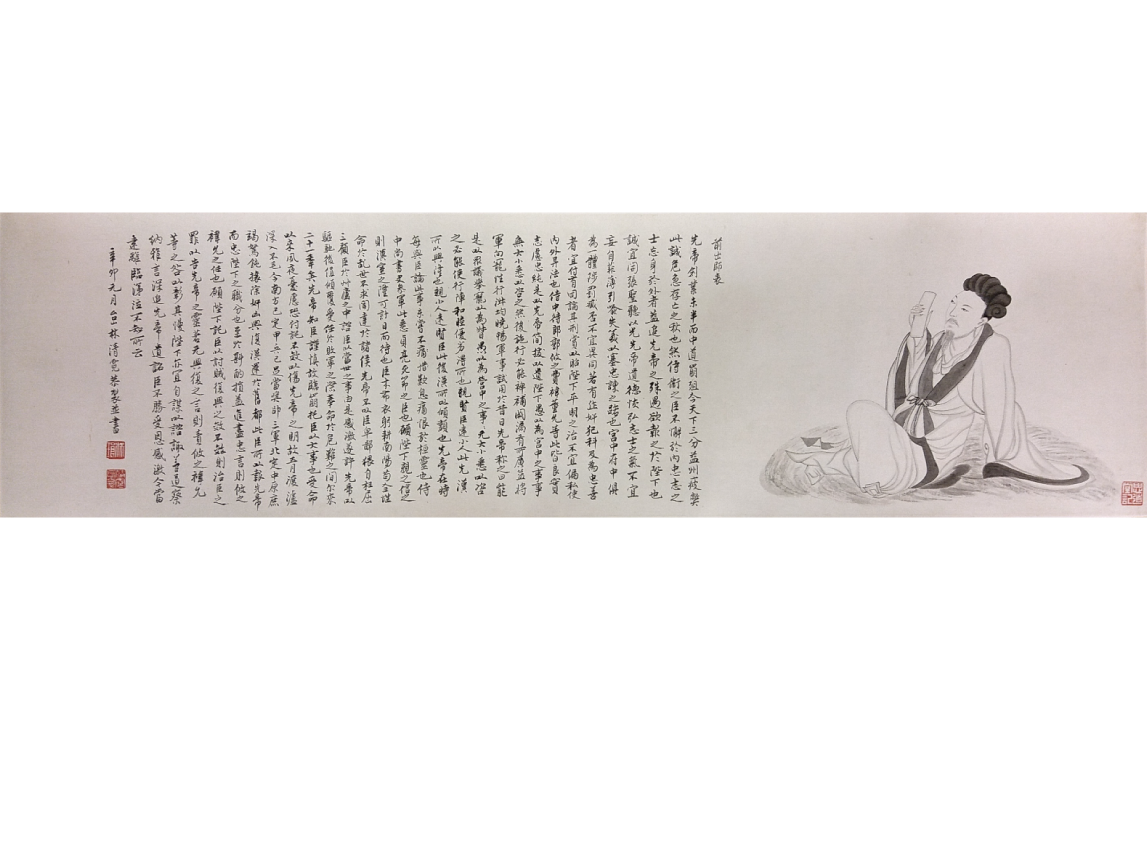 前出師表
先帝創業未半而中道崩殂今天下三分益州疲弊
此誠危急存亡之秋也然侍衛之臣不懈於內忠志之
士忘身於外者蓋追先帝之殊遇欲報之於陛下也
誠宜開張聖聽以光先帝遺德恢弘志士之氣不宜
妄自菲薄引喻失義以塞忠諫之路也宮中府中俱
為一體陟罰臧否不宜異同若有作奸犯科及為忠善
者宜付有司論其刑賞以昭陛下平明之治不宜偏私使
內外異法也侍中侍郎郭攸之費禕董允等此皆良實
志慮忠純是以先帝簡拔以遺陛下愚以為宮中之事事
無大小悉以咨之然後施行必能裨補闕漏有所廣益將
軍向寵性行淑均曉暢軍事試用於昔日先帝稱之曰能
是以眾議舉寵以為督愚以為營中之事无大小悉以咨
之必能使行陣和睦優劣得所也親賢臣遠小人此先漢
所以興隆也親小人遠賢臣此後漢所以傾頹也先帝在時
每與臣論此事未嘗不痛惜歎息痛恨於桓靈也侍
中尚書長史參軍此悉貞亮死節之臣也願陛下親之信之
則漢室之隆可計日而待也臣本布衣躬耕南陽苟全性
命於亂世不求聞達於諸侯先帝不以臣卑鄙猥自枉屈
三顧臣於草廬之中諮臣以當世之事由是感激遂許先帝以
驅馳後值傾覆受任於敗軍之際奉命於危難之間尔來
二十一年矣先帝知臣謹慎故臨崩託臣以大事也受命
以來夙夜憂慮恐付託不效以傷先帝之明故五月渡瀘
深入不毛今南方已定甲兵已足當獎帥三軍北定中原庶
竭駑鈍攘除奸凶興復漢室還於舊都此臣所以報先帝
而忠陛下之職分也至於斟酌損益進盡忠言則攸之
禕允之任也願陛下託臣以討賊復興之效不效則治臣之
罪以告先帝之靈若无興復之言則責攸之禕允
等之咎以彰其慢陛下亦宜自謀以諮諏善道察
納雅言深追先帝遺詔臣不勝受恩感激今當
遠離臨涕泣不知所云
辛卯元月台山林清霓恭製並書